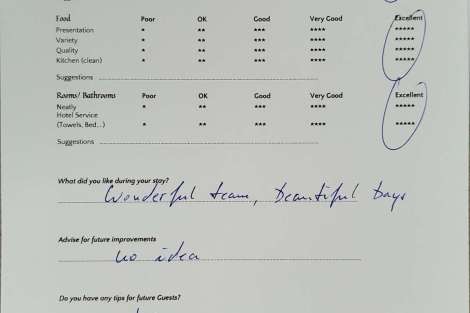 Food Poor OK Good Very Good Excellent
Presentation * ** *** **** *****
Variety * ** *** **** *****
Quality * ** *** **** *****
Kitchen (clean) * ** *** **** *****
Suggestions
Rooms/ Bathrooms Poor OK Good Very Good Excellent
Neatly * ** *** **** *****
Hotel Service
(Towels, Bed...) * ** *** **** *****
Suggestions
What did you like during your stay?
Wonderful team, beautiful bays
Advise for future improvements
no idea
Do you have any tips for future Guests?